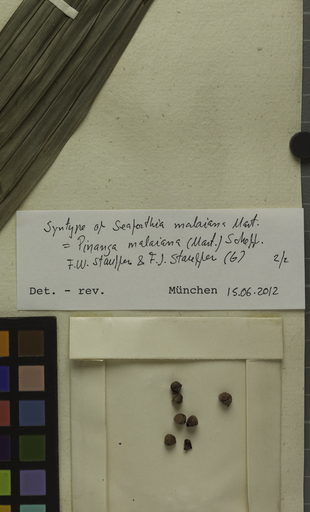 Syntype of Seaforthia malaiana Mart.
= Pinanga malaiana (Mart.) Scheff.
F.W. Stauffer & F.J. Stauffer (G) 2/2
Det. - rev. München 15.06.2012